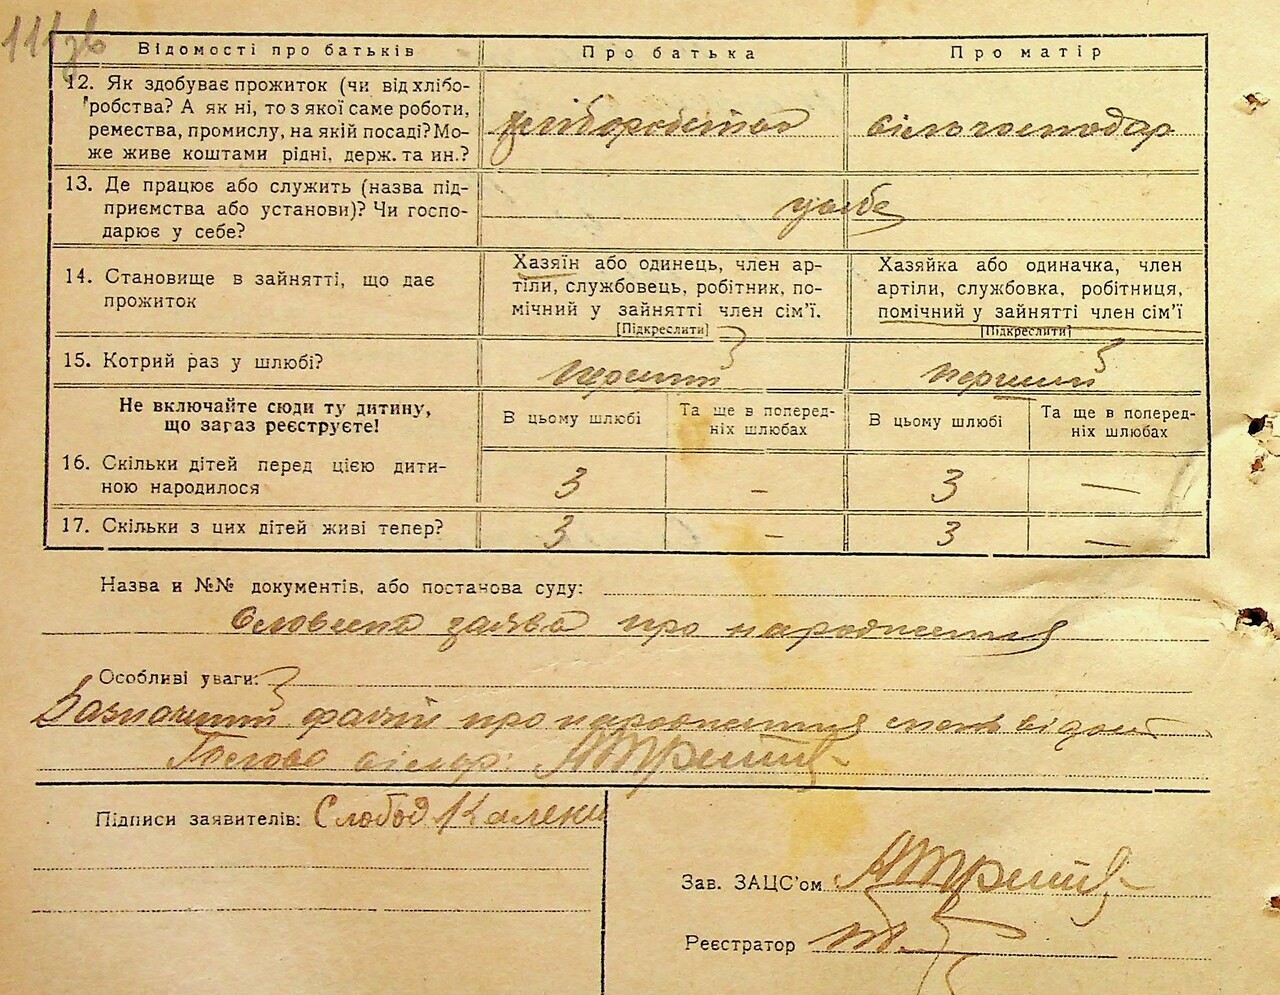 111зв
Відомості про батьків
Про батька
Про матір
12. Як здобуває прожиток (чи від хлібо-
робства? А як ні, то з якої саме роботи,
ремества, промислу, на якій посаді? Мо-
же живе коштами рідні, держ. та ин.?
хліборобство
сільгосподар
13. Де працює або служить (назва під-
приємства або установи)? Чи госпо-
дарює у себе?
у себе
14. Становище в зайнятті, що дає
прожиток
Хазяїн або одинець, член ар-
тіли, службовець, робітник, по-
мічний у зайнятті член сім'ї.
[Підкреслити]
Хазяйка або одиначка, член
артіли, службовка, робітниця,
помічний у зайнятті член сім'ї
[Підкреслити]
15. Котрий раз у шлюбі?
перший
перший
Не включайте сюди ту дитину,
що загаз реєструєте!
В цьому шлюбі
Та ще в поперед-
ніх шлюбах
В цьому шлюбі
Та ще в поперед-
ніх шлюбах
16. Скільки дітей перед цією дити-
ною народилося
3
-
3
—
17. Скільки з цих дітей живі тепер?
3
-
3
—
Назва и №№ документів, або постанова суду:
Словесна заява про народження
Особливі уваги:
Зазначений факт про народження
Підписи заявителів: Слобод
Зав. ЗАЦС'ом
Реєстратор